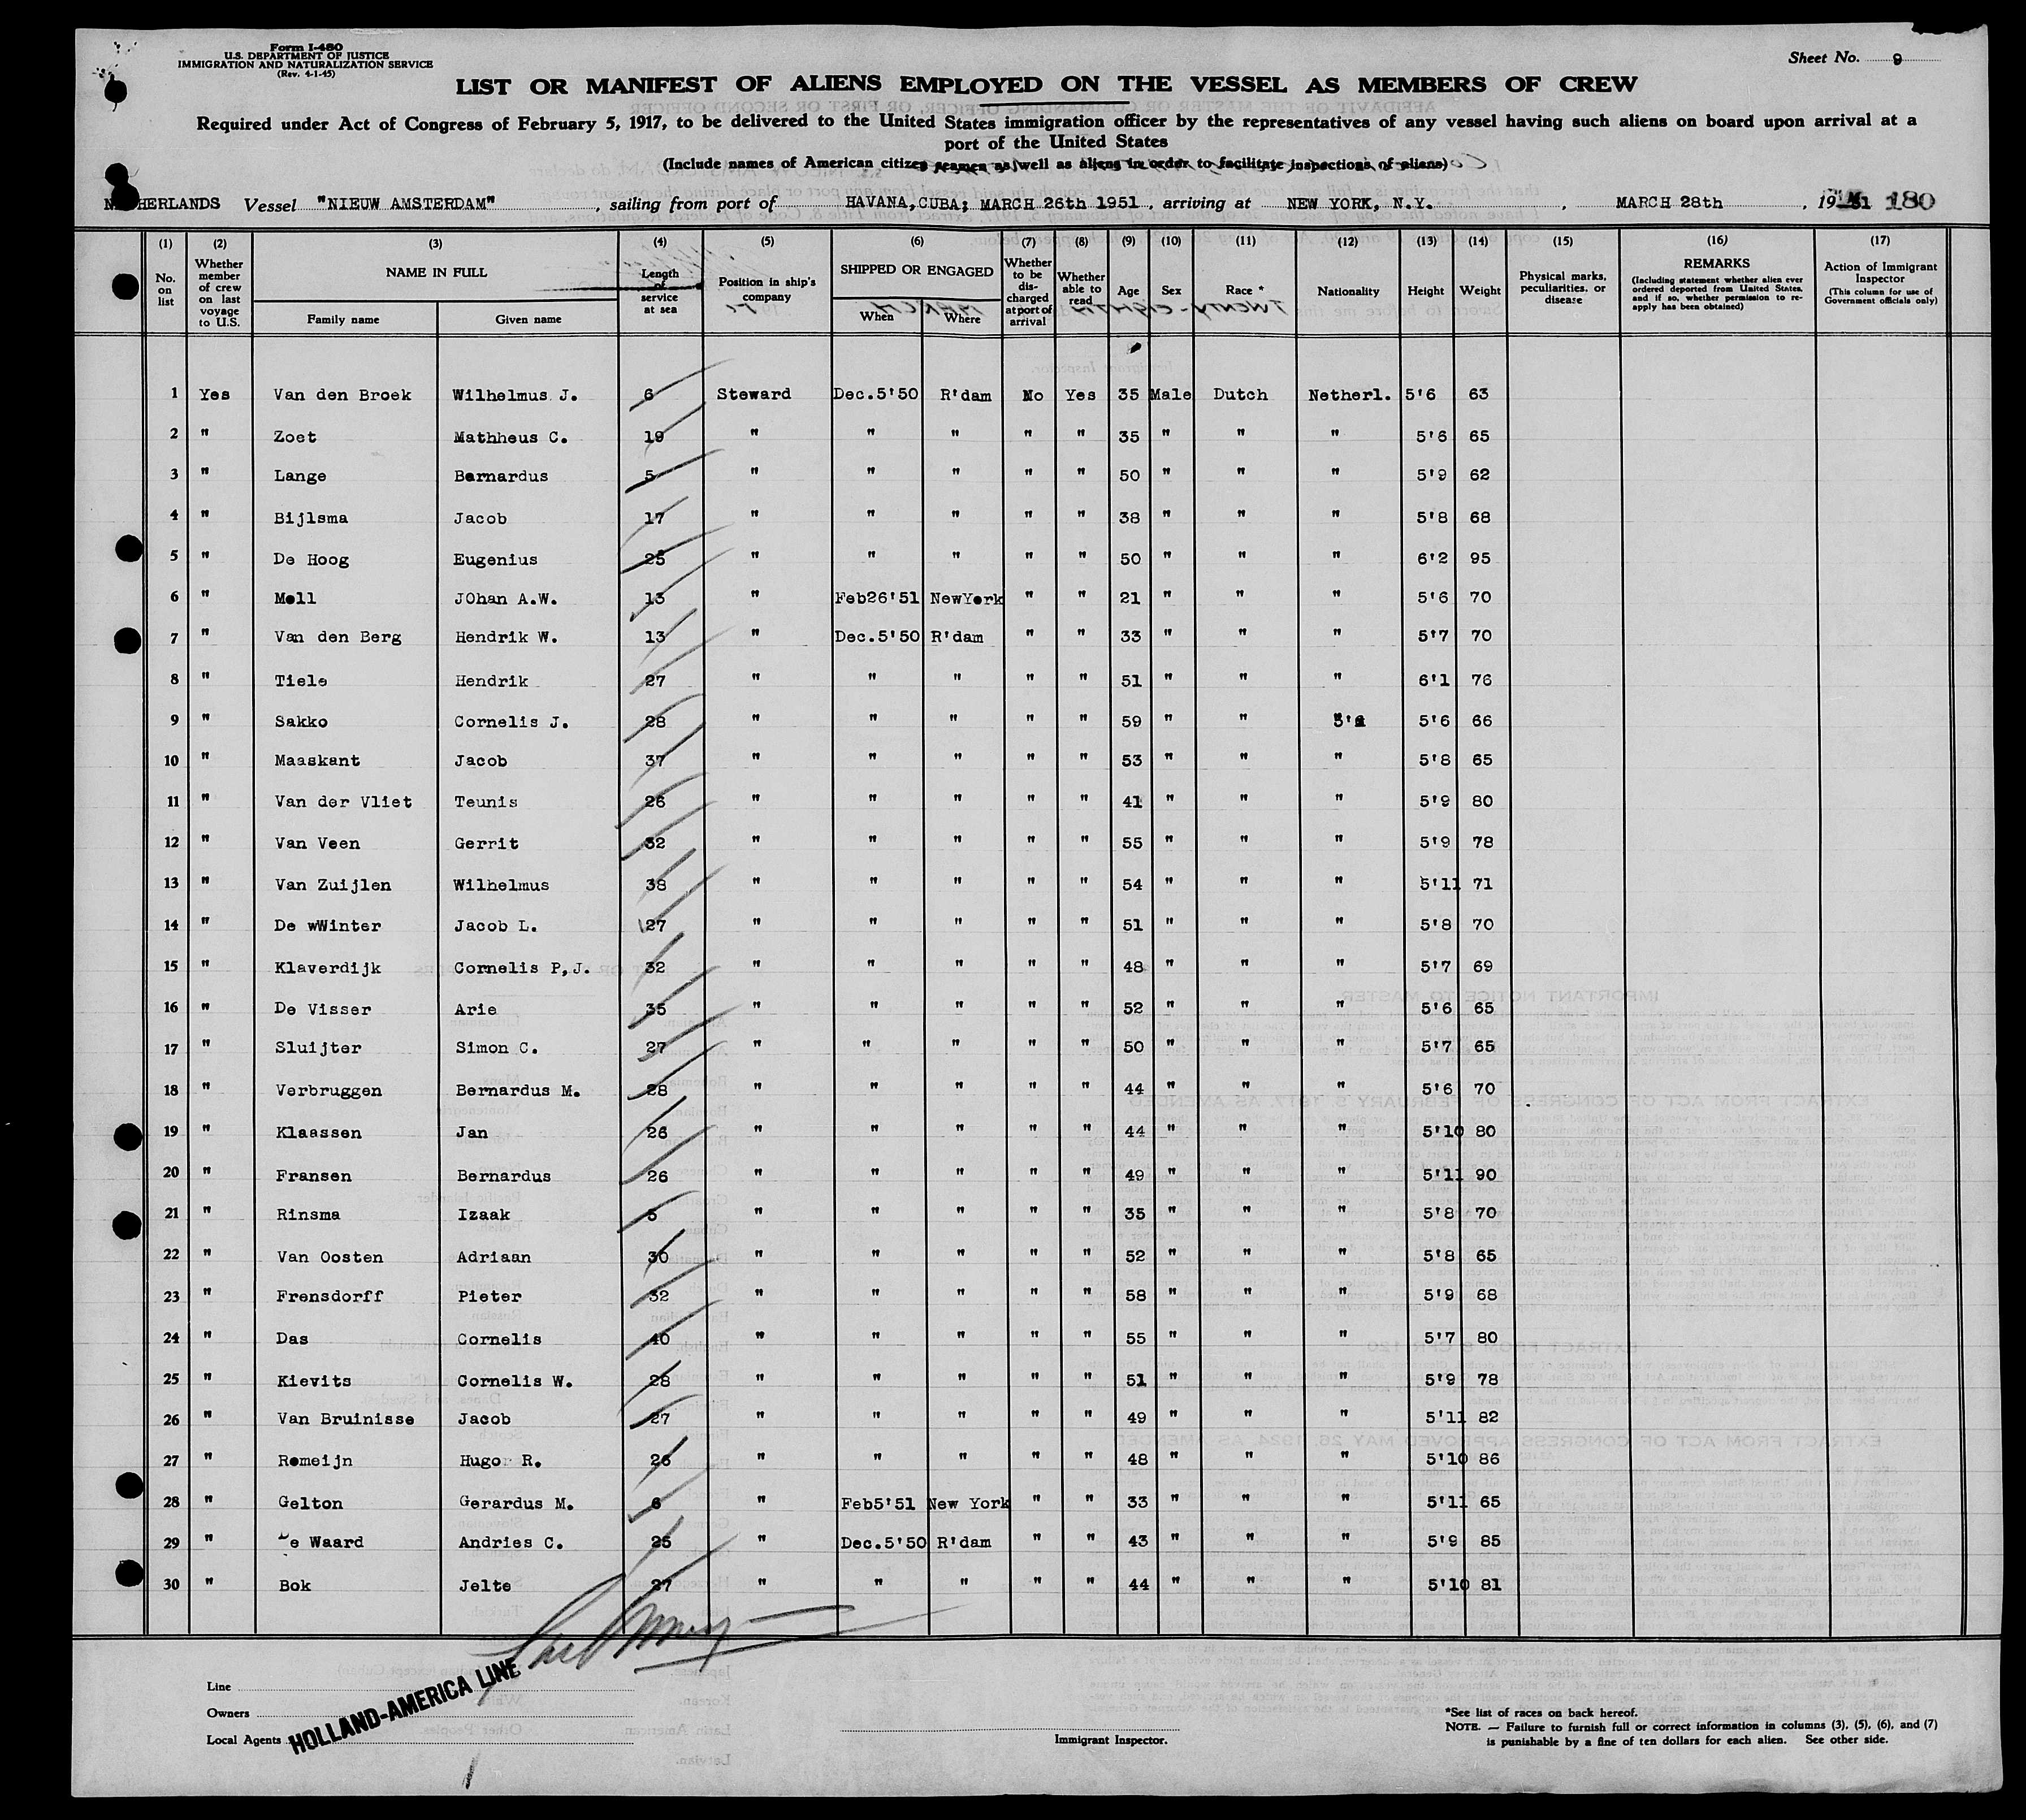 Form I-480
U.S. DEPARTMENT OF JUSTICE
IMMIGRATION AND NATURALIZATION SERVICE
(Rev. 4-1-45)
Sheet No. 9
LIST OR MANIFEST OF ALIENS EMPLOYED ON THE VESSEL AS MEMBERS OF CREW
Required under Act of Congress of February 5, 1917, to be delivered to the United States immigration officer by the representatives of any vessel having such aliens on board upon arrival at a
port of the United States
(Include names of American citizen seamen as well as aliens in order to facilitate inspections of aliens)
NETHERLANDS Vessel "NIEUW AMSTERDAM", sailing from port of HAVANA,CUBA; MARCH 26th 1951, arriving at NEW YORK, N.Y., MARCH 28th, 1951 180
(1) (2) (3) (4) (5) (6) (7) (8) (9) (10) (11) (12) (13) (14) (15) (16) (17)
No. on list
Whether member of crew on last voyage to U.S.
NAME IN FULL
Family name
Given name
Length of service at sea
Position in ship's company
SHIPPED OR ENGAGED
When
Where
Whether to be discharged at port of arrival
Whether able to read
Age
Sex
Race *
Nationality
Height
Weight
Physical marks, peculiarities, or disease
REMARKS
(Including statement whether alien ever ordered deported from United States, and if so, whether permission to reapply has been obtained)
Action of Immigrant Inspector
(This column for use of Government officials only)
1 Yes Van den Broek Wilhelmus J. 6 Steward Dec.5'50 R'dam No Yes 35 Male Dutch Netherl. 5'6 63
2 " Zoet Mathheus C. 19 " " " " " 35 " " " 5'6 65
3 " Lange Bernardus 5 " " " " " 50 " " " 5'9 62
4 " Bijlsma Jacob 17 " " " " " 38 " " " 5'8 68
5 " De Hoog Eugenius 25 " " " " " 50 " " " 6'2 95
6 " Moll JOhan A.W. 13 " Feb26'51 NewYork " " 21 " " " 5'6 70
7 " Van den Berg Hendrik W. 13 " Dec.5'50 R'dam " " 33 " " " 5'7 70
8 " Tiele Hendrik 27 " " " " " 51 " " " 6'1 76
9 " Sakko Cornelis J. 28 " " " " " 59 " " " 5'6 66
10 " Maaskant Jacob 37 " " " " " 53 " " " 5'8 65
11 " Van der Vliet Teunis 26 " " " " " 41 " " " 5'9 80
12 " Van Veen Gerrit 32 " " " " " 55 " " " 5'9 78
13 " Van Zuijlen Wilhelmus 38 " " " " " 54 " " " 5'11 71
14 " De wWinter Jacob L. 27 " " " " " 51 " " " 5'8 70
15 " Klaverdijk Cornelis P,J. 32 " " " " " 48 " " " 5'7 69
16 " De Visser Arie 35 " " " " " 52 " " " 5'6 65
17 " Sluijter Simon C. 27 " " " " " 50 " " " 5'7 65
18 " Verbruggen Bernardus M. 28 " " " " " 44 " " " 5'6 70
19 " Klaassen Jan 26 " " " " " 44 " " " 5'10 80
20 " Fransen Bernardus 26 " " " " " 49 " " " 5'11 90
21 " Rinsma Izaak 5 " " " " " 35 " " " 5'8 70
22 " Van Oosten Adriaan 30 " " " " " 52 " " " 5'8 65
23 " Frensdorff Pieter 32 " " " " " 58 " " " 5'9 68
24 " Das Cornelis 40 " " " " " 55 " " " 5'7 80
25 " Kievits Cornelis W. 28 " " " " " 51 " " " 5'9 78
26 " Van Bruinisse Jacob 27 " " " " " 49 " " " 5'11 82
27 " Romeijn Hugo R. 26 " " " " " 48 " " " 5'10 86
28 " Gelton Gerardus M. 6 " Feb5'51 New York " " 33 " " " 5'11 65
29 " De Waard Andries C. 25 " Dec.5'50 R'dam " " 43 " " " 5'9 85
30 " Bok Jelte 27 " " " " " 44 " " " 5'10 81
Line
Owners
Local Agents
HOLLAND-AMERICA LINE
Immigrant Inspector.
*See list of races on back hereof.
NOTE. — Failure to furnish full or correct information in columns (3), (5), (6), and (7)
is punishable by a fine of ten dollars for each alien. See other side.